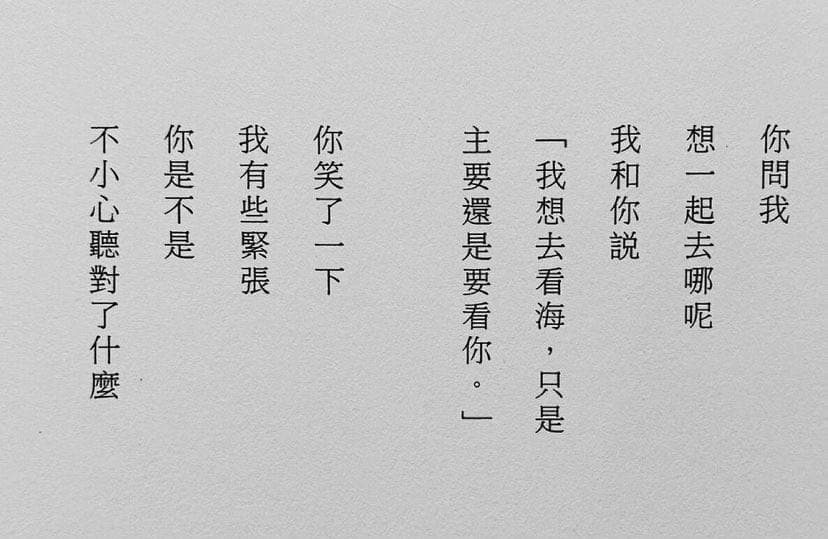 你問我
想一起去哪呢
我和你說
「我想去看海，只是
主要還是要看你。」
你笑了一下
我有些緊張
你是不是
不小心聽對了什麼